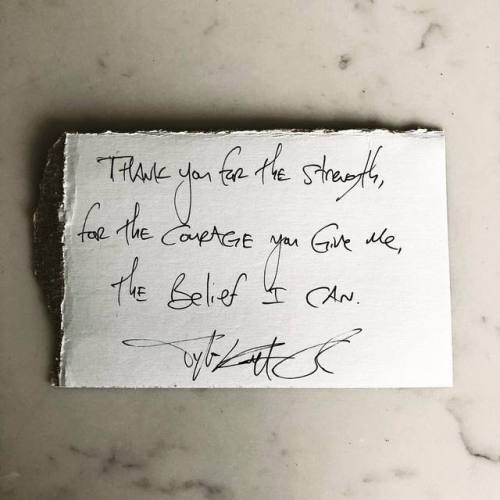 Thank you for the strength,
for the courage you give me,
the Belief I can.